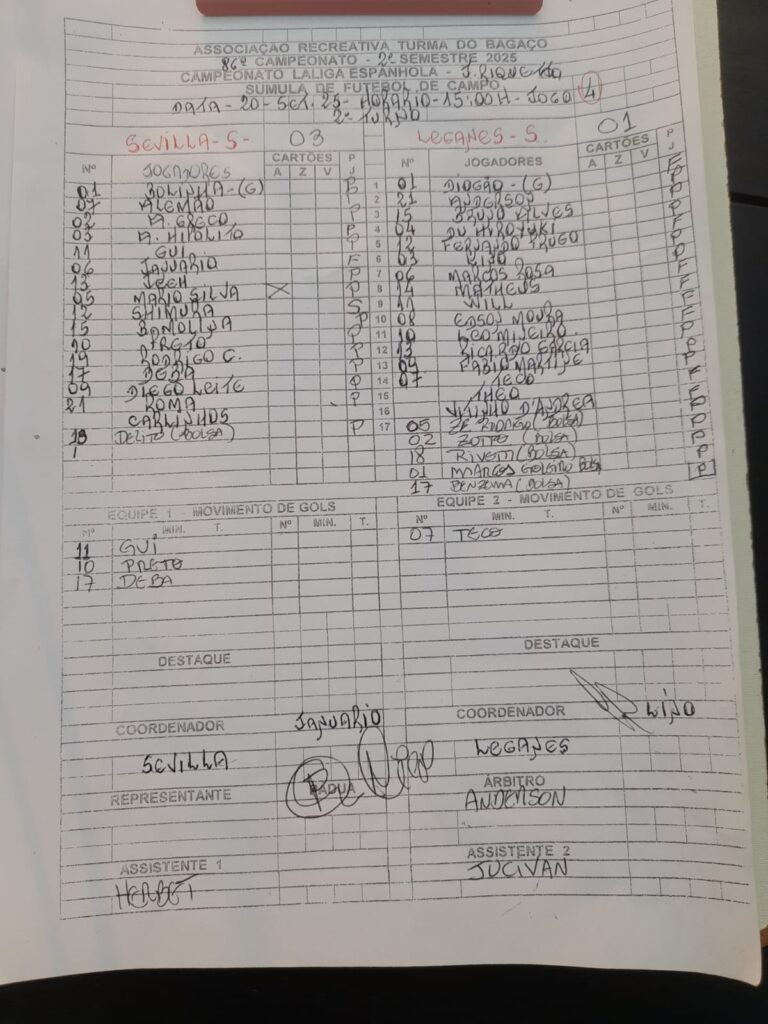 ASSOCIAÇÃO RECREATIVA TURMA DO BAGAÇO
86º CAMPEONATO - 2º SEMESTRE 2025
CAMPEONATO LALIGA ESPANHOLA - J. RIQUETTO
SÚMULA DE FUTEBOL DE CAMPO
DATA - 20 - SET. 25 - HORARIO - 15:00H - JOGO 4
2º TURNO
SEVILLA - S - 03
LEGANES - S 01
Nº JOGADORES CARTÕES A Z V P J
Nº JOGADORES CARTÕES A Z V P J
01 BOLINHA - (G) 1 01 DIOGÃO - (G)
07 ALEMÃO 2 21 ANDERSON
02 A. GRECO P 3 15 BRUNO ALVES
03 A. HIPOLITO P 4 04 DU HIROYUKI
11 GUI P 5 12 FERNANDO TRUGO
06 JANUARIO F 6 03
13 P 7 06 MARCOS ROSA
05 MARIO SILVA X P 8 14 MATHEUS
12 SHIMURA S 9 11 WILL
15 P 10 08 EDSON MOURA
10 PRETO P 11 10 LEO MINEIRO
19 RODRIGO C. P 12 13 RICARDO GARCIA
17 DEBA P 13 09 FABIO MARTINE
09 DIEGO LEITE P 14 07 TECO
21 ROMA P 15 THEO
CARLINHOS 16 VITINHO D'ANDREA
18 DELITO (BOLSA) P 17 05 ZÉ RODRIGO (BOLSA)
02 ZOITO (BOLSA)
18 RIVEM (BOLSA)
01 MARCOS GOLEIRO BOLSA
17 BENZEMA (BOLSA)
EQUIPE 1 - MOVIMENTO DE GOLS
EQUIPE 2 - MOVIMENTO DE GOLS
Nº MIN. T. Nº MIN. T.
Nº MIN. T. Nº MIN. T.
11 GUI
07 TECO
10 PRETO
17 DEBA
DESTAQUE
DESTAQUE
COORDENADOR JANUARIO
COORDENADOR LINO
SEVILLA
LEGANES
REPRESENTANTE PADUA
ÁRBITRO
ANDERSON
ASSISTENTE 1
HERBET
ASSISTENTE 2
JUCIVAN